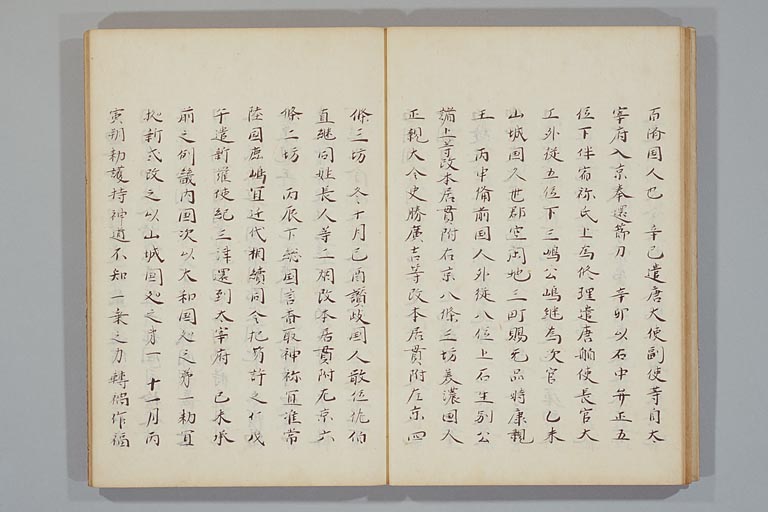 百済国人也　辛巳遣唐大使副使等自太
宰府入京奉還節刀　辛卯以石中弁正五
位下伴宿祢氏上為修理遣唐舶使長官大
工外従五位下三嶋公嶋継為次官　乙未
山城国久世郡空閑地三町賜无品時康親
王　丙申備前国人外従八位上石生別公
諸上等改本居貫附右京八條三坊美濃国人
正親大令史勝廣吉等改本居貫附左京四
條三坊　冬十月己酉讃岐国人散位佐伯
直継同姓長人等二烟改本居貫附左京六
條二坊　丙辰下総国言香取神祢宜准常
陸国鹿嶋宜近代相続同令把笏許之　戊
午遣新羅使紀三津還到大宰府　己未承
前之例畿内国次以大和国処之第一勅宜
拠新式改之以山城国処之第一　十一月丙
寅朔勅護持神道不如一乗之力転禍作福